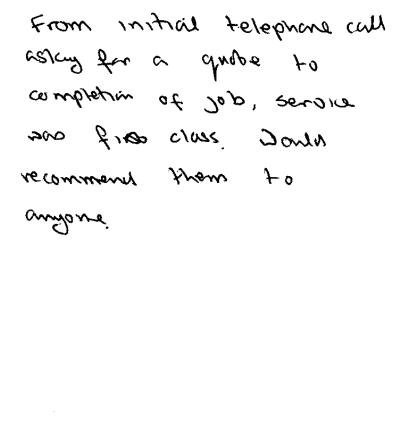 From initial telephone call
asking for a quote to
completion of job, service
was first class. Would
recommend them to
anyone.